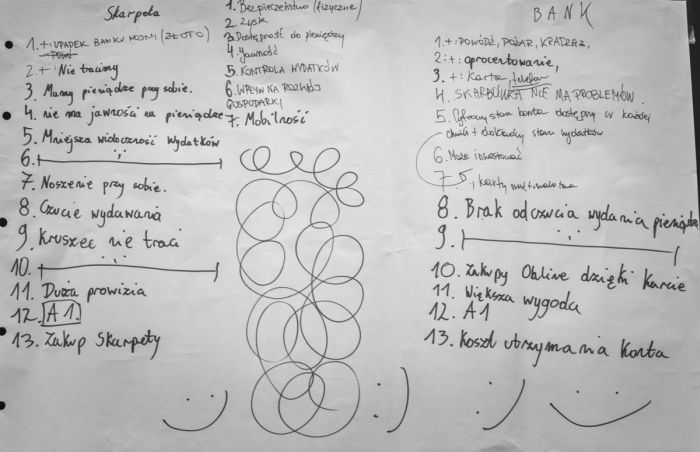 Skarpeta
1. +: UPADEK BANKU NOMI (ZŁOTO)
2. +: Nie tracimy
3. Mamy pieniądze przy sobie.
4. nie ma jawności na pieniądze
5. Mniejsza widoczność wydatków
6.
7. Noszenie przy sobie.
8. Czucie wydawania
9. Kruszec nie traci
10.
11. Duża prowizia
12. A1.
13. Zakup Skarpety
1. Bezpieczeństwo (fizyczne)
2. Zysk
3. Dostępność do pieniędzy
4. Jawność
5. KONTROLA WYDATKÓW
6. WPŁYW NA ROZWÓJ
GOSPODARKI
7. Mobilność
BANK
1. +: POWÓDŹ, POŻAR, KRADZIEŻ,
2: +: oprocentowanie,
3. +: Karta, telefon
4. SKARBÓWKA NIE MA PROBLEMÓW.
5. Cyfrowy stan konta dostępny w każdej
chwili + dokładny stan wydatków
6. Może inwestować
7. 5, karty multiwalutowe
8. Brak odczucia wydania pieniędzy
9.
10. Zakupy Online dzięki karcie
11. Większa wygoda
12. A1
13. Koszt utrzymania konta